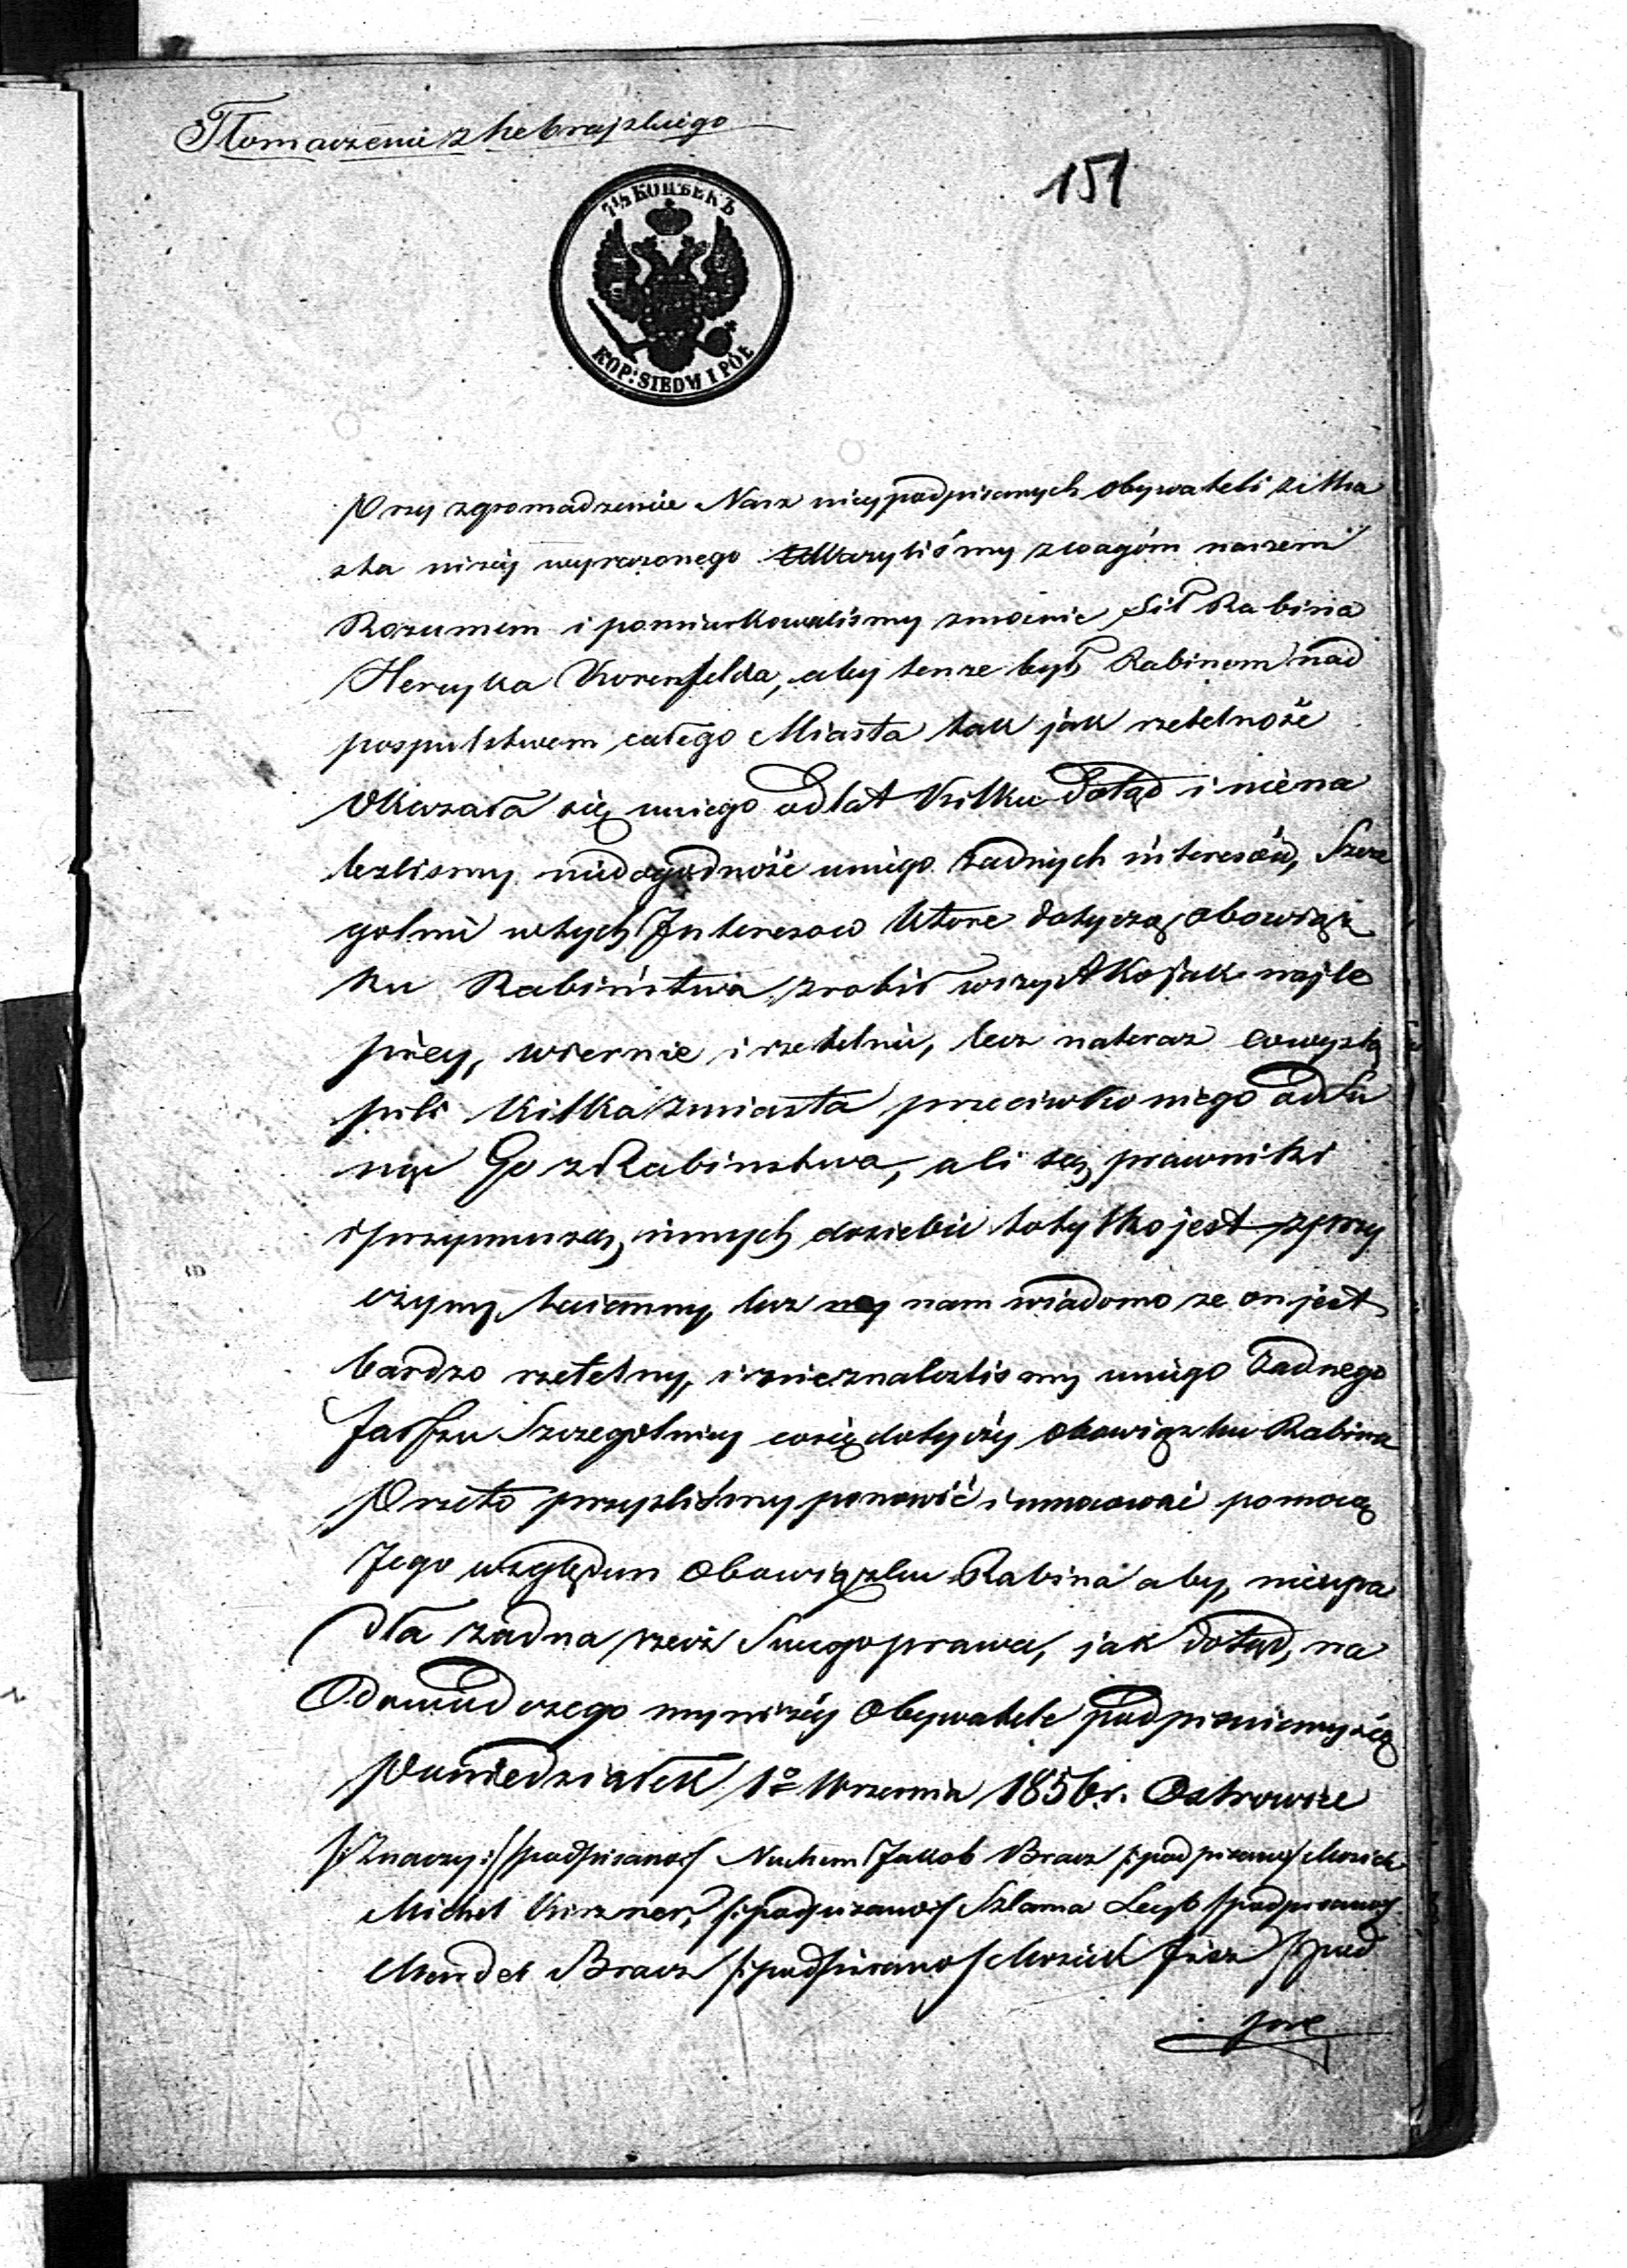 Tłomaczenie z hebrajskiego
151
7½ КОПѢЕКЪ
KOP: SIEDM I PÓŁ
Przy zgromadzenie Nasz niżej podpisanych obywateli z Mia
sta niżej wyrazonego zważyliśmy z wagóm naszem
Rozumem i pomiarkowaliśmy zmocnie Sił Rabina
Herszka Korenfelda, aby tenże był Rabinem nad
pospulstwem całego Miasta tak jak rzetelność
Okazała się uniego od lat Kilku Dotąd i niena
lezlismy niedogodność uniego Żadnych interesów, Szcze
golnie wtych Interesow Które dotyczą obowiąz
ku Rabiństwa zrobił wszystko jak najle
piéy, wiernie i rzetelnie, lecz nateraz co wystą
pili Kilka z miasta przeciwko niego odsu
nąć Go z Rabinstwa, ali są prawniki
i przymuszą innych dosiebie totylko jest z przy
czyny taiemny, lecz nam wiadomo ze on jest
bardzo rzetelny, i nieznalezlismy uniego Żadnego
Falszu Szczególniey cosię dotyczy Obowiązku Rabina
Przeto przyszliśmy ponowić i umocować pomocą
Jego względem Obowiązku Rabina aby, nieupa
dła żadna rzecz Swego prawa, jak dotąd, na
Odowud czego my niżéy Obywatele podpisuiemy się
Poniedziałek 1º Września 1856 r. Ostrowice
/:Znaczy:/ /podpisano/ Nuchem Jakob Bracz /:podpisano/ Moszek
Michel Kirzner, /:podpisano/ Szlama Leyb /podpisano/
Mendel Bracz /:podpisano/ Moszek /:pod